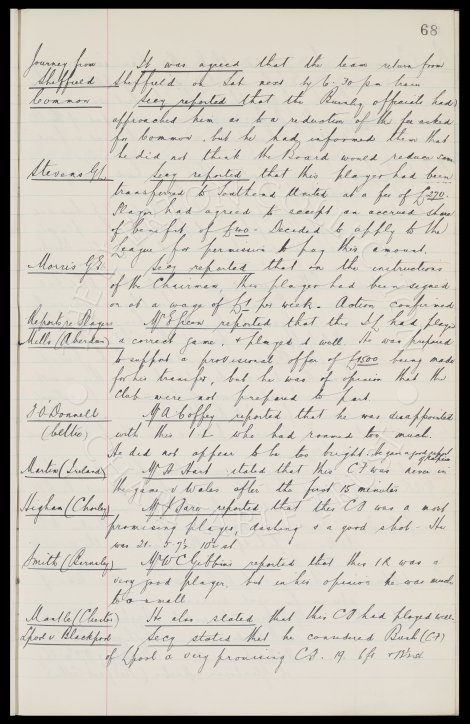 68
Journey from It was agreed that the team return from
Sheffield Sheffield on Sat next by 6.30 pm train
Common Secy reported that the Burnley officials had
approached him as to a reduction of the fee asked
for Common, but he had informed them that
he did not think the Board would reduce same
Stevens G.L. Secy reported that this player had been
transferred to Southend United at a fee of £270.
Player had agreed to accept an accrued share
of benefit of Decided to apply to the
League for permission to pay this amount.
Morris G.E. Secy reported that on the instructions
of the Chairman, this player had been signed
on at a wage of per week. Action confirmed
Reports re Players Mr E Green reported that this I.L had played
Mills (Aberdeen) a correct game, & played well. He was prepared
to support a provisional offer of £1500 being made
for his transfer, but he was of opinion that the
club were not prepared to part.
O'Donnell Mr A Coffey reported that he was disappointed
(Celtic) with this I.L who had roamed too much.
He did not appear to be too bright.
Martin (Ireland) Mr A Hart stated that this CF was never in
the game v Wales after the first 15 minutes
Higham (Chorley) Mr reported that this CF was a most
promising player, dashing & a good shot. He
was 21. 10st
Smith (Burnley) Mr W C Gibbins reported that this IR was a
very good player, but in his opinion he was much
too small.
Mantle (Chester) He also stated that this CF had played well.
Lpool v Blackpool Secy stated that he considered Bush (CF)
of Lpool a very promising CF. 19. 6ft